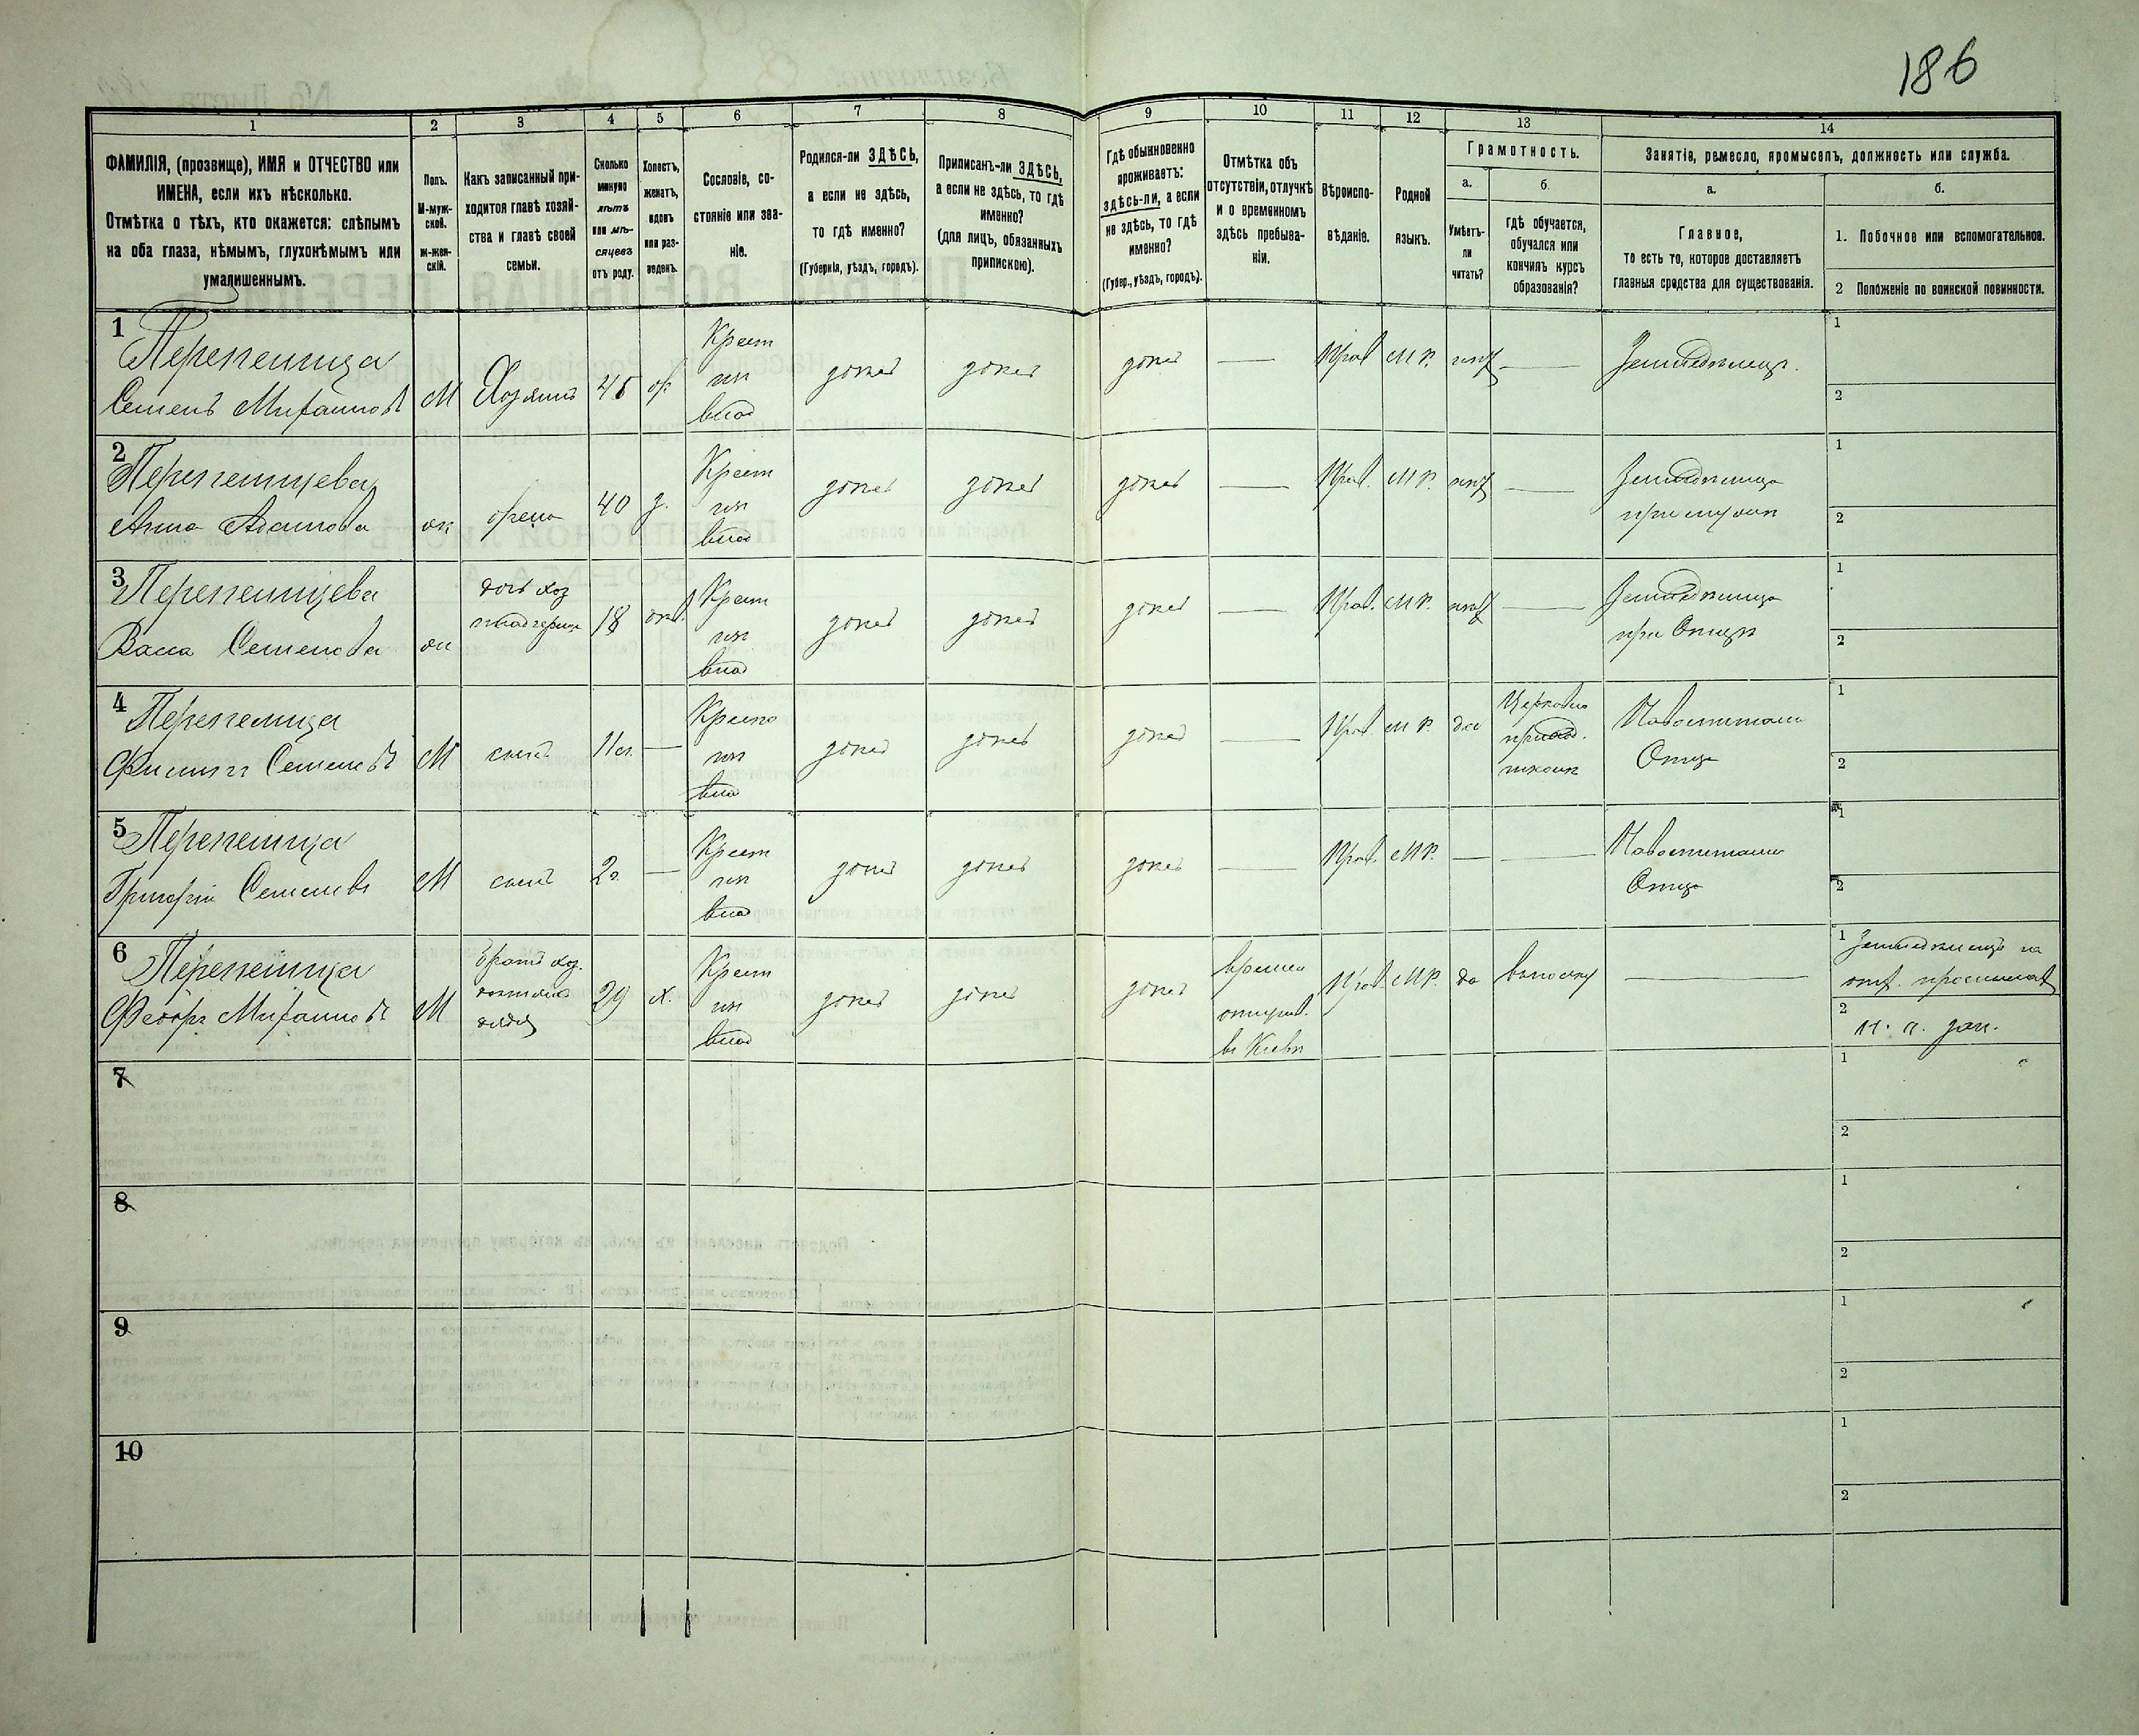 186
1 2 3 4 5 6 7 8 9 10 11 12 13 14
ФАМИЛІЯ, (прозвище), ИМЯ и ОТЧЕСТВО или
ИМЕНА, если ихъ нѣсколько.
Отмѣтка о тѣхъ, кто окажется: слѣпымъ
на оба глаза, нѣмымъ, глухонѣмымъ или
умалишеннымъ.
Полъ.
М-муж-
ской.
ж-жен-
скій.
Какъ записанный при-
ходится главѣ хозяй-
ства и главѣ своей
семьи.
Сколько
минуло
лѣтъ
или мѣ-
сяцевъ
отъ роду.
Холостъ,
женатъ,
вдовъ
или раз-
веденъ.
Сословіе, со-
стояніе или зва-
ніе.
Родился-ли ЗДѢСЬ,
а если не здѣсь,
то гдѣ именно?
(Губернія, уѣздъ, городъ).
Приписанъ-ли ЗДѢСЬ,
а если не здѣсь, то гдѣ
именно?
(для лицъ, обязанныхъ
припискою).
Гдѣ обыкновенно
проживаетъ:
здѣсь-ли, а если
не здѣсь, то гдѣ
именно?
(Губер., уѣздъ, городъ).
Отмѣтка объ
отсутствіи, отлучкѣ
и о временномъ
здѣсь пребыва-
ніи.
Вѣроиспо-
вѣданіе.
Родной
языкъ.
Грамотность.
а.
Умѣетъ-
ли
читать?
б.
гдѣ обучается,
обучался или
кончилъ курсъ
образованія?
Занятіе, ремесло, промыселъ, должность или служба.
а.
Главное,
то есть то, которое доставляетъ
главныя средства для существованія.
б.
1. Побочное или вспомогательное.
2 Положеніе по воинской повинности.
1
Перепелица
Семенъ Михайловъ
М
Хозяинъ
Крест
из
влад
здѣсь
здѣсь
здѣсь
—
Прав
М Р.
нѣт
—
Земледѣлецъ.
1
2
2
Перепелицева
Анна Адамова
ж
жена
40
з.
Крест
из
влад
здѣсь
здѣсь
здѣсь
—
Прав.
М Р.
нѣт
—
Земледѣлица
при мужѣ
1
2
3
Перепелицева
Васса Семенова
ж
дочь хоз
падчерица
18
Крест
из
влад
здѣсь
здѣсь
здѣсь
—
Прав.
М Р.
нѣт
—
Земледѣлица
при Отцѣ
1
2
4
Перепелица
Филиппъ Семеновъ
М
сынъ
11
—
Крест
из
влад
здѣсь
здѣсь
здѣсь
—
Прав.
М Р.
да
Церковно
приход.
школѣ
Отца
1
2
5
Перепелица
Григорій Семеновъ
М
сынъ
2 г.
—
Крест
из
влад
здѣсь
здѣсь
здѣсь
—
Прав.
М Р.
—
—
Отца
1
2
6
Перепелица
Федоръ Михайловъ
М
Братъ хоз.
29
х.
Крест
из
влад
здѣсь
здѣсь
здѣсь
времен
отправ.
въ Кіевѣ
Прав.
М Р.
да
—
1
Земледѣлецъ на
2
7
1
2
8
1
2
9
1
2
10
1
2